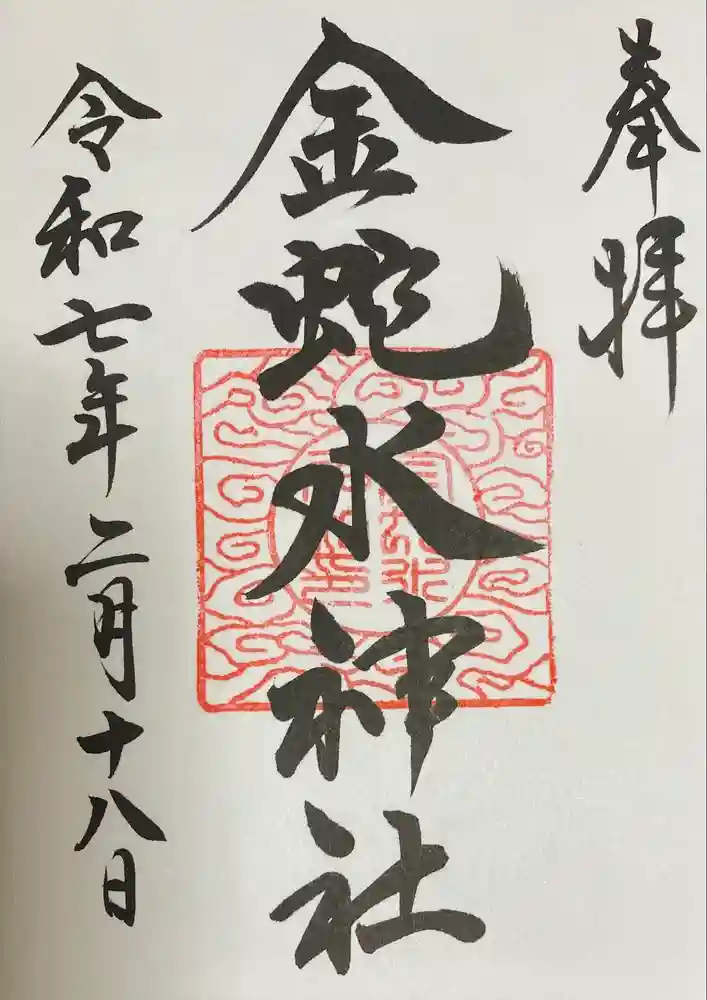 奉拝
金蛇水神社
令和七年二月十八日